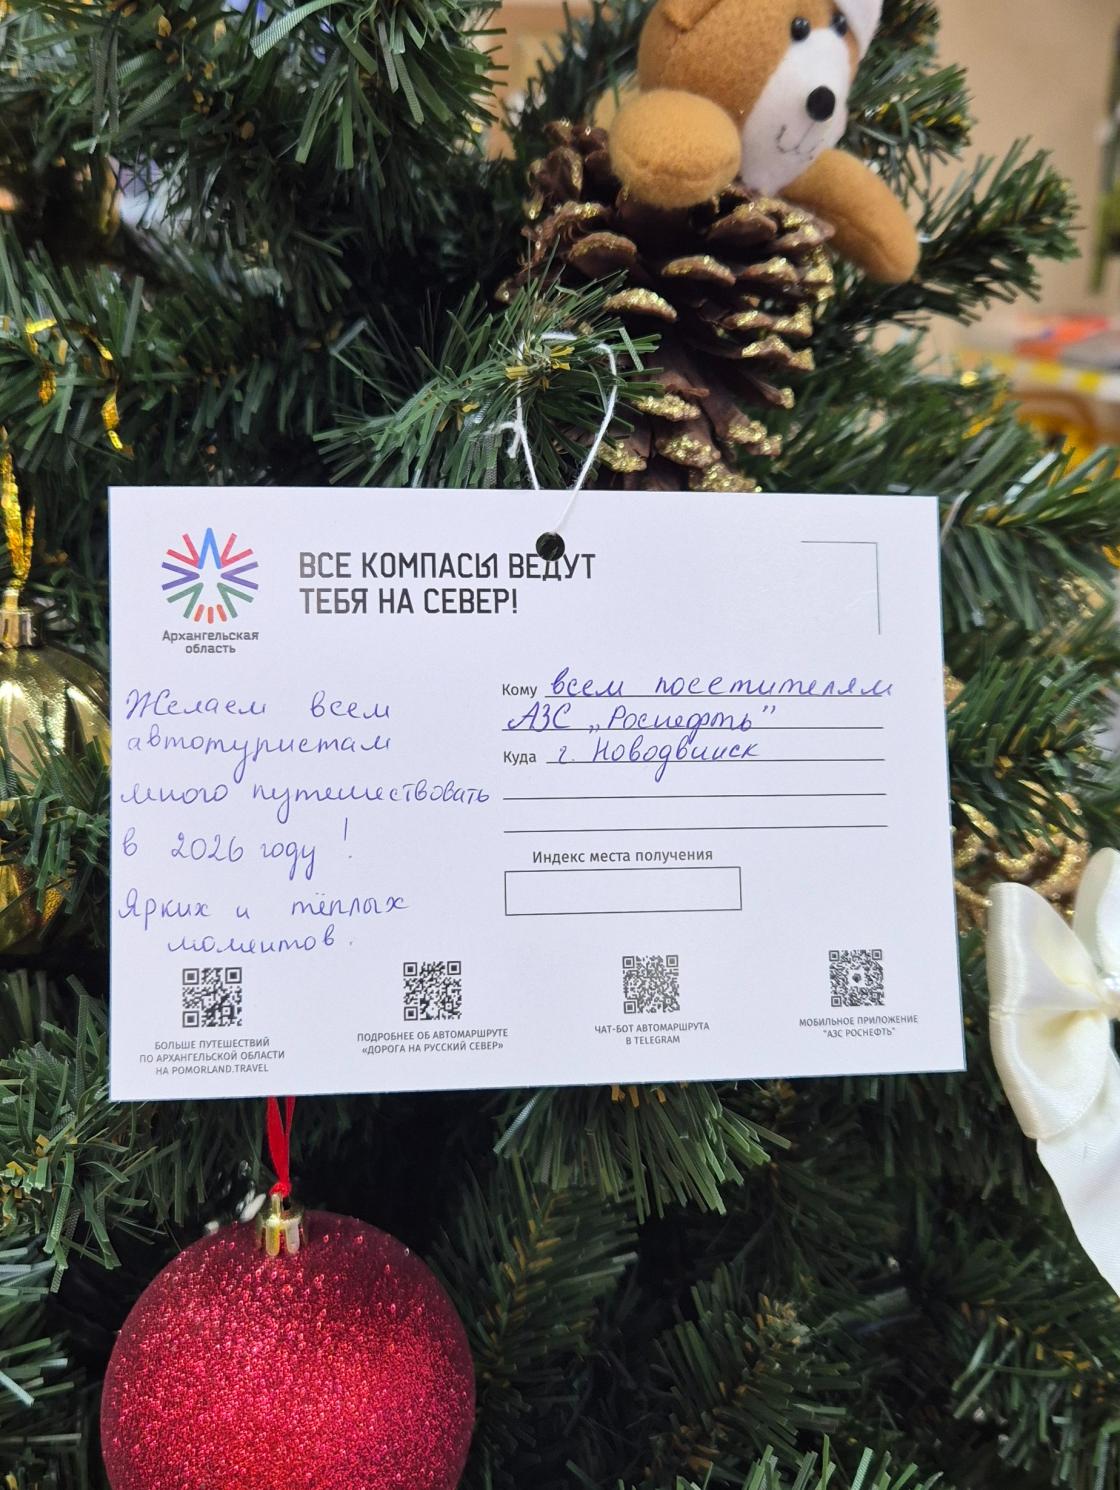 Архангельская
область
ВСЕ КОМПАСЫ ВЕДУТ
ТЕБЯ НА СЕВЕР!
Желаем всем
автотуристам
много путешествовать
в 2026 году!
Ярких и тёплых
моментов.
Кому всем посетителям
АЗС „Роснефть”
Куда г. Новодвинск
Индекс места получения
БОЛЬШЕ ПУТЕШЕСТВИЙ
ПО АРХАНГЕЛЬСКОЙ ОБЛАСТИ
НА POMORLAND.TRAVEL
ПОДРОБНЕЕ ОБ АВТОМАРШРУТЕ
«ДОРОГА НА РУССКИЙ СЕВЕР»
ЧАТ-БОТ АВТОМАРШРУТА
В TELEGRAM
МОБИЛЬНОЕ ПРИЛОЖЕНИЕ
"АЗС РОСНЕФТЬ"